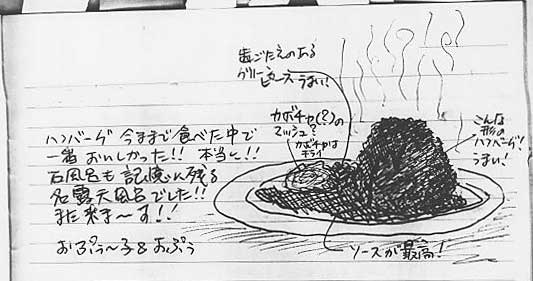 歯ごたえのある
グリーン
ピースうまい!
カボチャ(?)の
マッシュ?
カボチャは
キライ
こんな
形の
ハンバーグ!
うまい!
ハンバーグ 今まで食べた中で
一番 おいしかった!! 本当に!!
石風呂も 記憶に残る
名露天風呂でした!!
また来ま〜す!!
おぷぅ〜子&おぷぅ
ソースが最高!